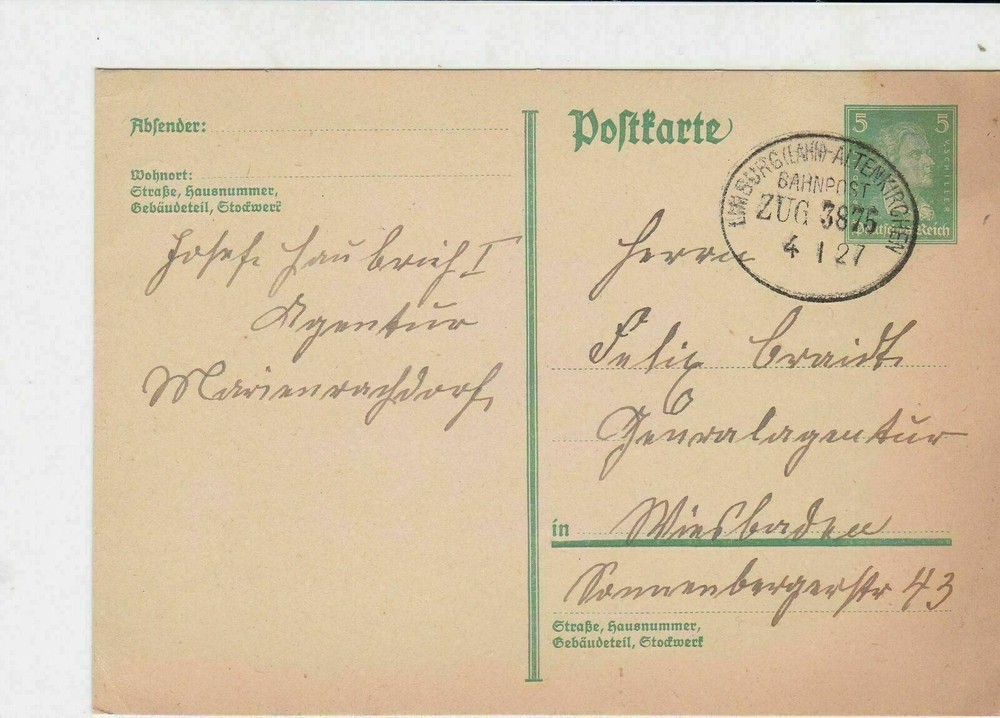 Absender:
Wohnort:
Straße, Hausnummer,
Gebäudeteil, Stockwerk
Josef Haubrich I
Agentur
Marienrachdorf
Postkarte
5 5
F.v.SCHILLER
Deutsches Reich
LIMBURG(LAHN)-ALTENKIRCHEN
BAHNPOST
ZUG 3875
4 1 27
Herrn
Felix Braidt
Generalagentur
in Wiesbaden
Sonnenbergerstr 43
Straße, Hausnummer,
Gebäudeteil, Stockwerk